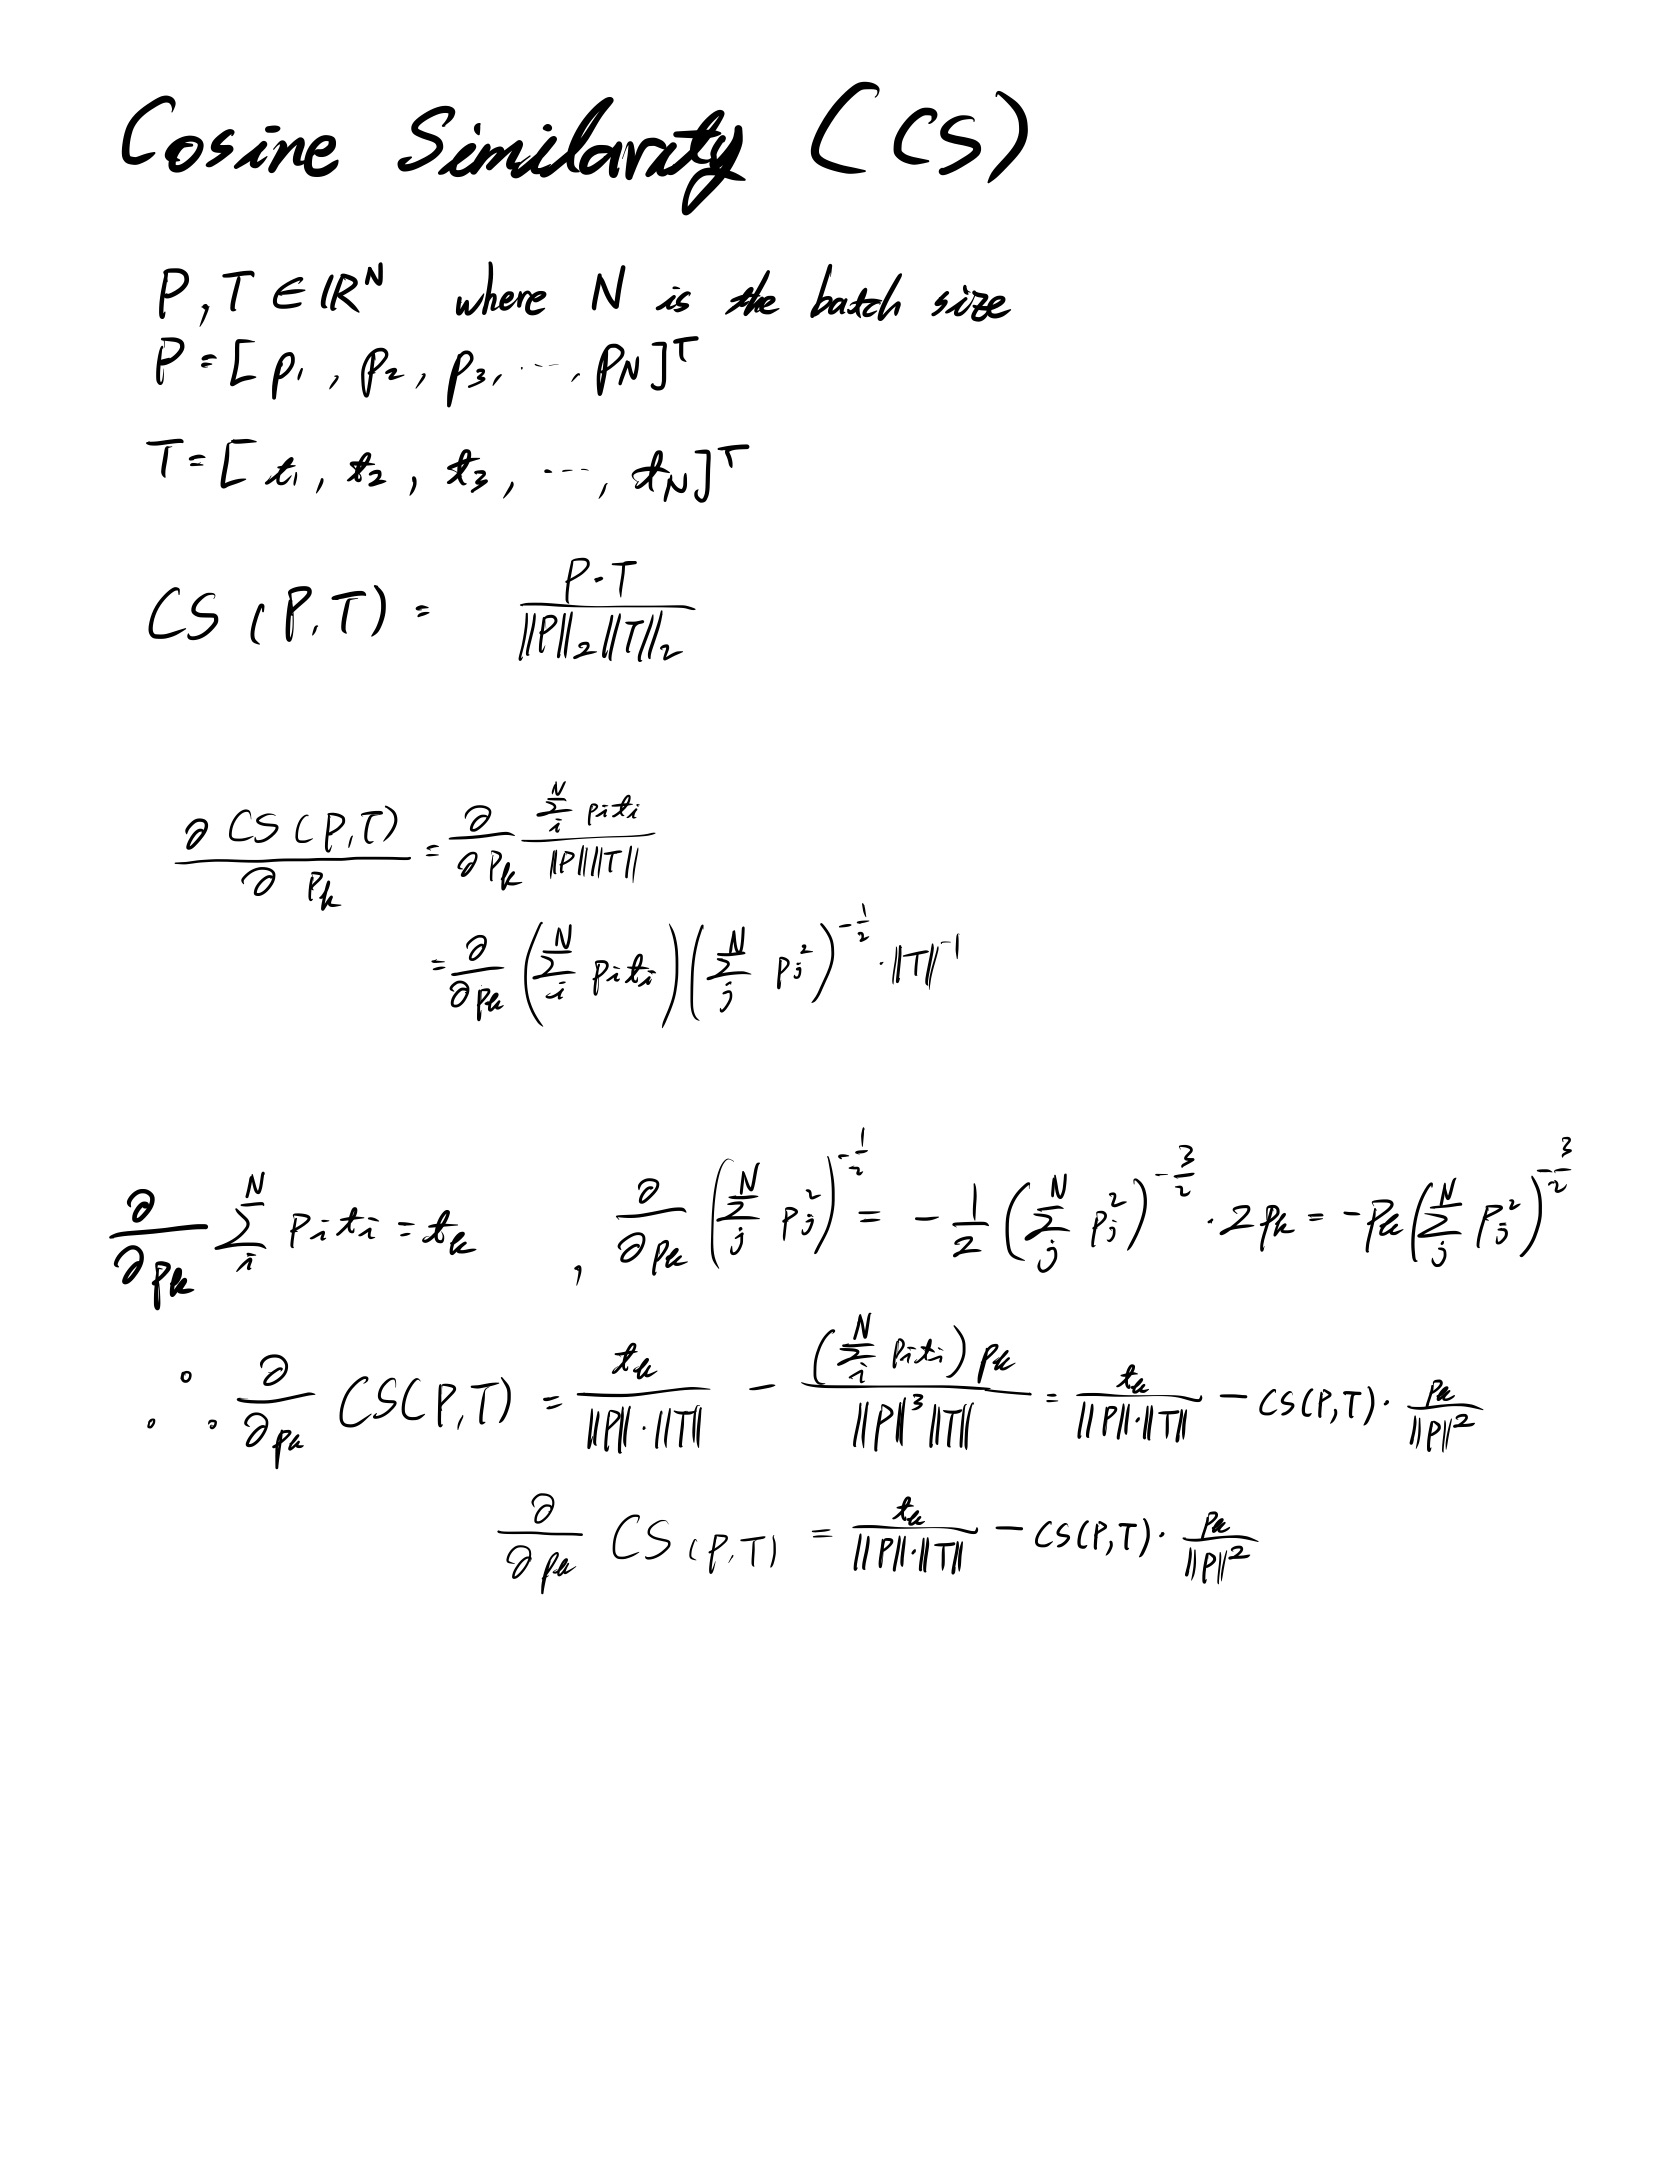 Cosine Similarity (CS)
P, T ∈ ℝ^N where N is the batch size
P = [p₁, p₂, p₃, ⋯, p_N]^T
T = [t₁, t₂, t₃, ⋯, t_N]^T
CS(P,T) = \frac{P·T}{‖P‖₂‖T‖₂}
\frac{∂ CS(P,T)}{∂ p_k} = \frac{∂}{∂p_k} \frac{\sum_i^N p_i t_i}{‖P‖‖T‖}
= \frac{∂}{∂p_k} (\sum_i^N p_i t_i)(\sum_j^N p_j^2)^{-\frac{1}{2}} · ‖T‖^{-1}
\frac{∂}{∂p_k} \sum_i^N p_i t_i = t_k , \frac{∂}{∂p_k} (\sum_j^N p_j^2)^{-\frac{1}{2}} = -\frac{1}{2} (\sum_j^N p_j^2)^{-\frac{3}{2}} · 2p_k = -p_k (\sum_j^N p_j^2)^{-\frac{3}{2}}
∴ \frac{∂}{∂p_k} CS(P,T) = \frac{t_k}{‖P‖·‖T‖} - \frac{(\sum_i^N p_i t_i) p_k}{‖P‖^3 ‖T‖} = \frac{t_k}{‖P‖·‖T‖} - CS(P,T) · \frac{p_k}{‖P‖^2}
\frac{∂}{∂p_k} CS(P,T) = \frac{t_k}{‖P‖·‖T‖} - CS(P,T) · \frac{p_k}{‖P‖^2}